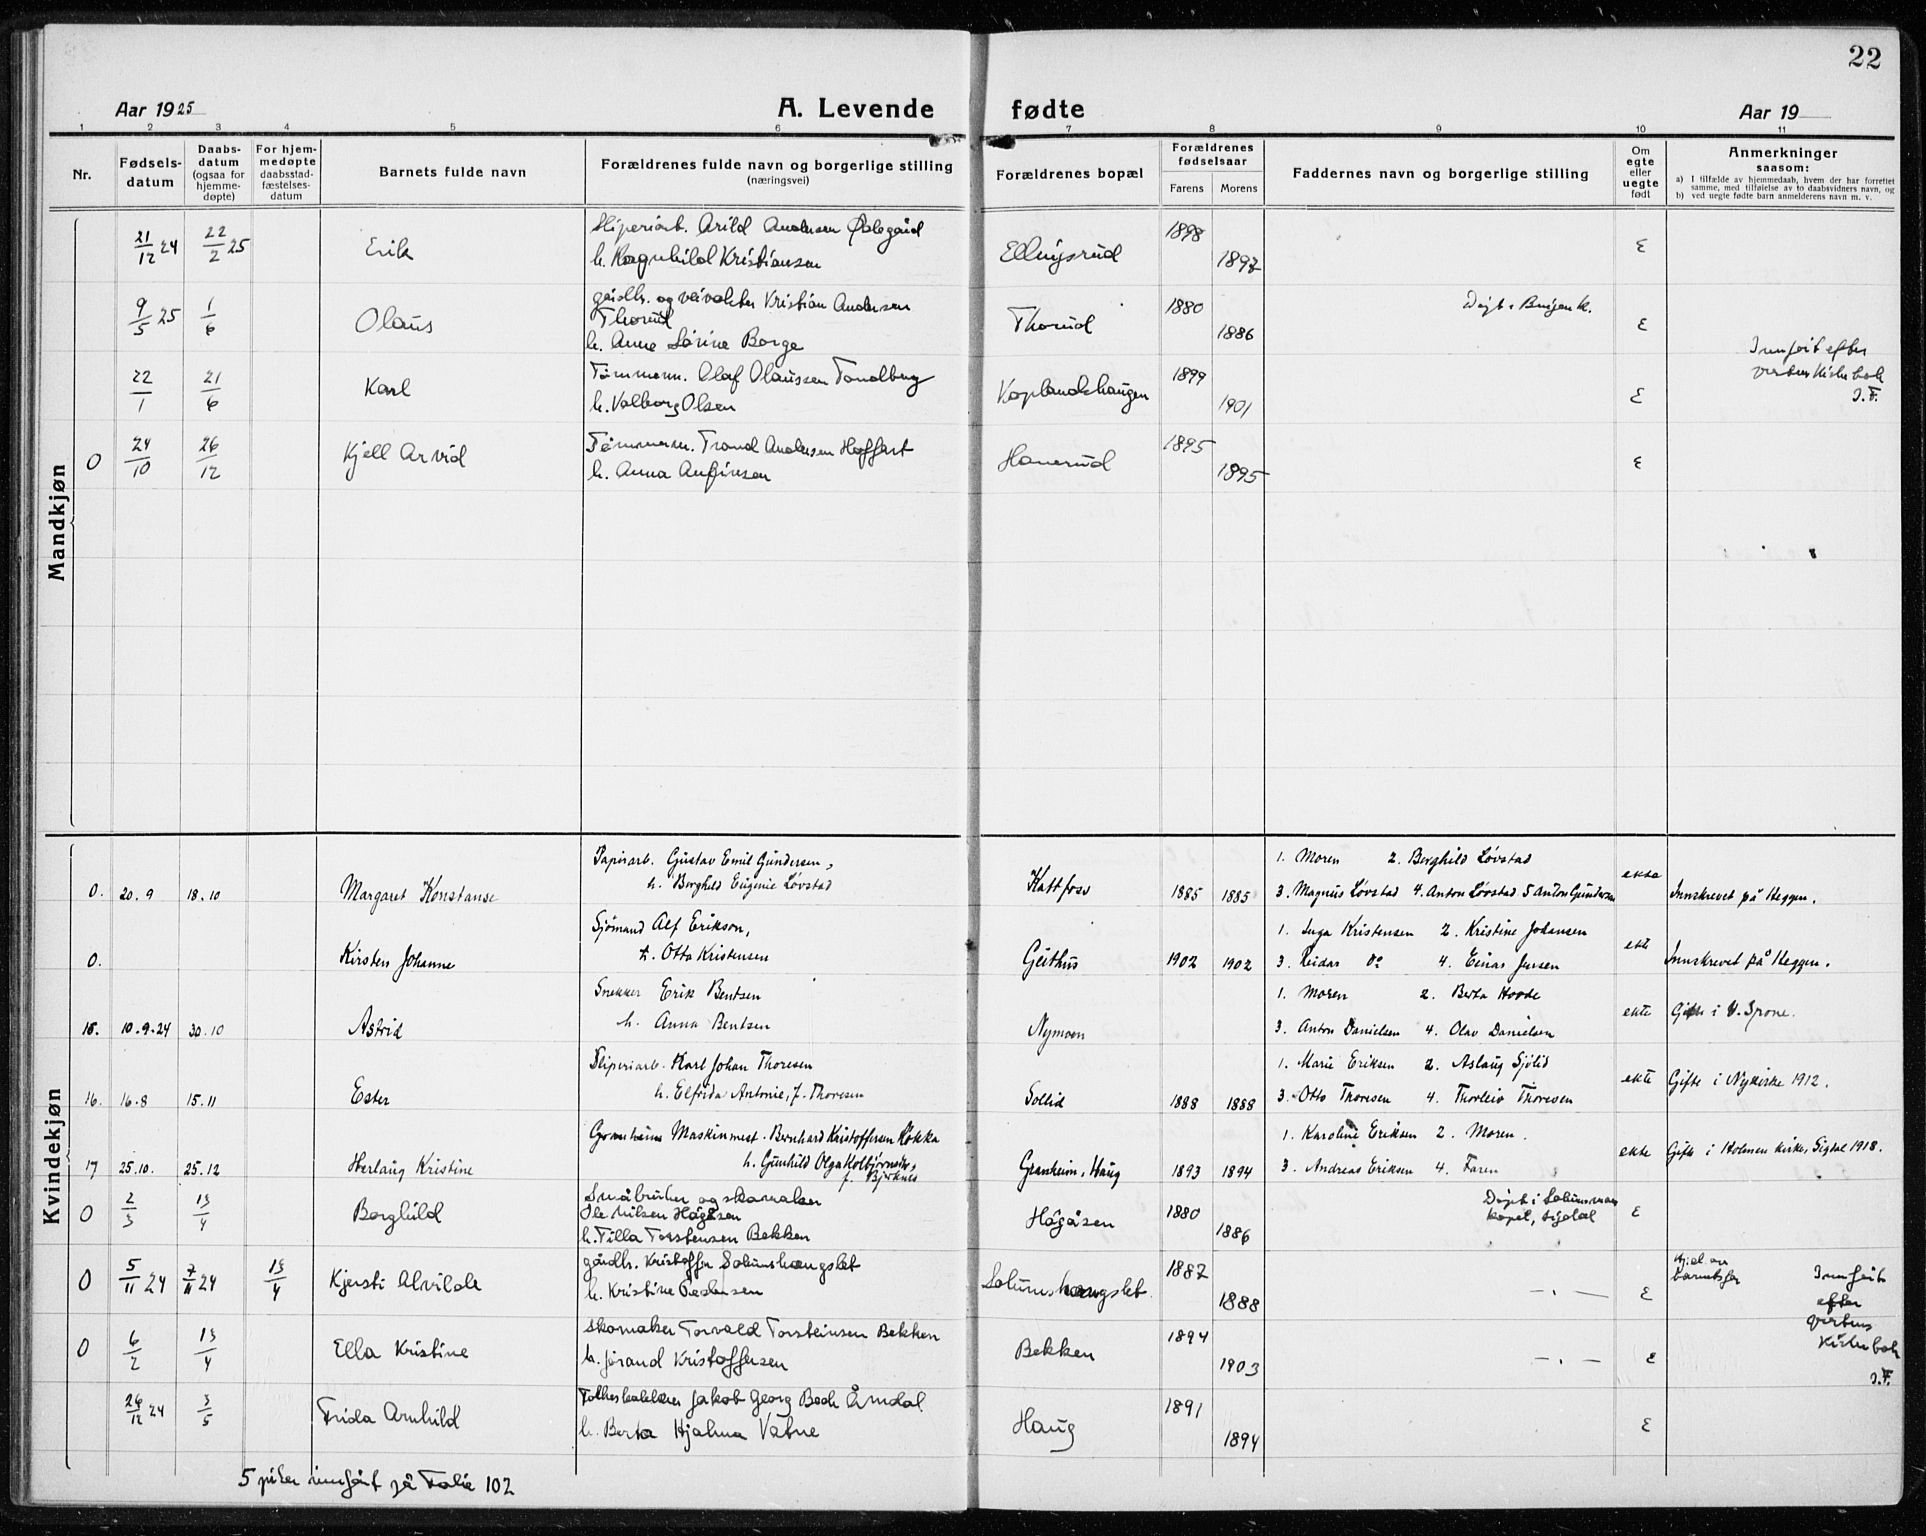 22
Aar 1925
A. Levende fødte
Aar 19
1 2 3 4 5 6 7 8 9 10 11
Nr.
Fødsels-
datum
Daabs-
datum
(ogsaa for
hjemme-
døpte)
For hjem-
medøpte
daabsstad-
fæstelses-
datum
Barnets fulde navn
Forældrenes fulde navn og borgerlige stilling
(næringsvei)
Forældrenes bopæl
Forældrenes
fødselsaar
Farens Morens
Faddernes navn og borgerlige stilling
Om
egte
eller
uegte
født
Anmerkninger
saasom:
a) I tilfælde av hjemmedaab, hvem der har forrettet
samme, med tilføielse av to daabsvidners navn, og
b) ved uegte fødte barn anmelderens navn m. v.
Mandkjøn
21/12 24 22/2 25 Erik
Sliperiarb. Arild Andersen
h. Ragnhild Kristiansen
Ellingsrud 1898 1897 E
9/5 25 1/6 Olaus
gårdbr. og veivokter Kristian Andersen
Thorud
h. Anne Sørine Borge
Thorud 1880 1886 E
22/1 21/6 Karl
Tømmerm. Olaf Olaussen Tandberg
h. Valborg Olsen
Koplandshaugen 1899 1901 E
Innført efter
verbens Kirkebok
J.F.
0 24/10 26/12 Kjell Arvid
Tømmerm. Trond Andersen Hoffart
h. Anna Anfinsen
Hanerud 1895 1895 E
Kvindekjøn
0. 20.9 18.10 Margaret Konstanse
Papirarb. Gustav Emil Gundersen,
h. Borghild Eugenie Løvstad
Kattfoss 1885 1885
1. Moren 2. Borghild Løvstad
3. Magnus Løvstad 4. Anton Løvstad 5 Anton Gundersen
ekte Innskrevet på Heggen.
0. Kirsten Johanne
Sjömand Alf Erikson,
h. Otta Kristensen
Geithus 1902 1902
1. Inga Kristensen 2. Kristine Johansen
3. Reidar Do 4. Einar Jensen
ekte Innskrevet på Heggen.
15. 10.9.24 30.10 Astrid
Snekker Erik Bentsen
h. Anna Bentsen
Nymoen
1. Moren 2. Berta Hovde
3. Anton Danielsen 4. Olav Danielsen
ekte Gift i V. Spone.
16. 16.8 15.11 Ester
Sliperiarb. Karl Johan Thoresen
h. Elfrida Antonie, f. Thoresen
Sollid 1888 1888
1. Marie Eriksen 2. Aslaug Sjölid
3. Otto Thoresen 4. Thorleiv Thoresen
ekte Gifte i Nykirke 1912.
17 25.10. 25.12 Herlaug Kristine
Granheim Maskinmest. Bernhard Kristoffersen Løkka
h. Gunhild Olga Kolbjørnsdtr,
f. Bjerknes
Granheim, Haug 1893 1894
1. Karoline Eriksen 2. Moren.
3. Andreas Eriksen 4. Faren
ekte Gifte i Holmen kirke, Sigdal 1918.
0 2/3 13/4 Borghild
Småbruker og skomaker
Ole Nilsen Høgåsen
h. Tilla Torstensen Bekken
Høgåsen 1880 1886
Døpt i Solumsmoen
kapel, Sigdal E
0 5/11 24 7/11 24 13/4 Kjersti Alvilde
gårdbr. Kristoffer Solumshaugslet
h. Kristine Pedersen
Solumshaugslet 1887 1888 — . — E
Innført
efter
verbens
Kirkebok
J.F.
0 6/2 13/4 Ella Kristine
Skomaker Torvald Torsteinsen Bekken
h. Jørand Kristoffersen
Bekken 1894 1903 — . — E
26/12 24 3/5 Frida Arnhild
Jakob Georg Bech Årndal
h. Berta Hjalma Vatne
Haug 1891 1894 E
5 piker innført på Folie 102